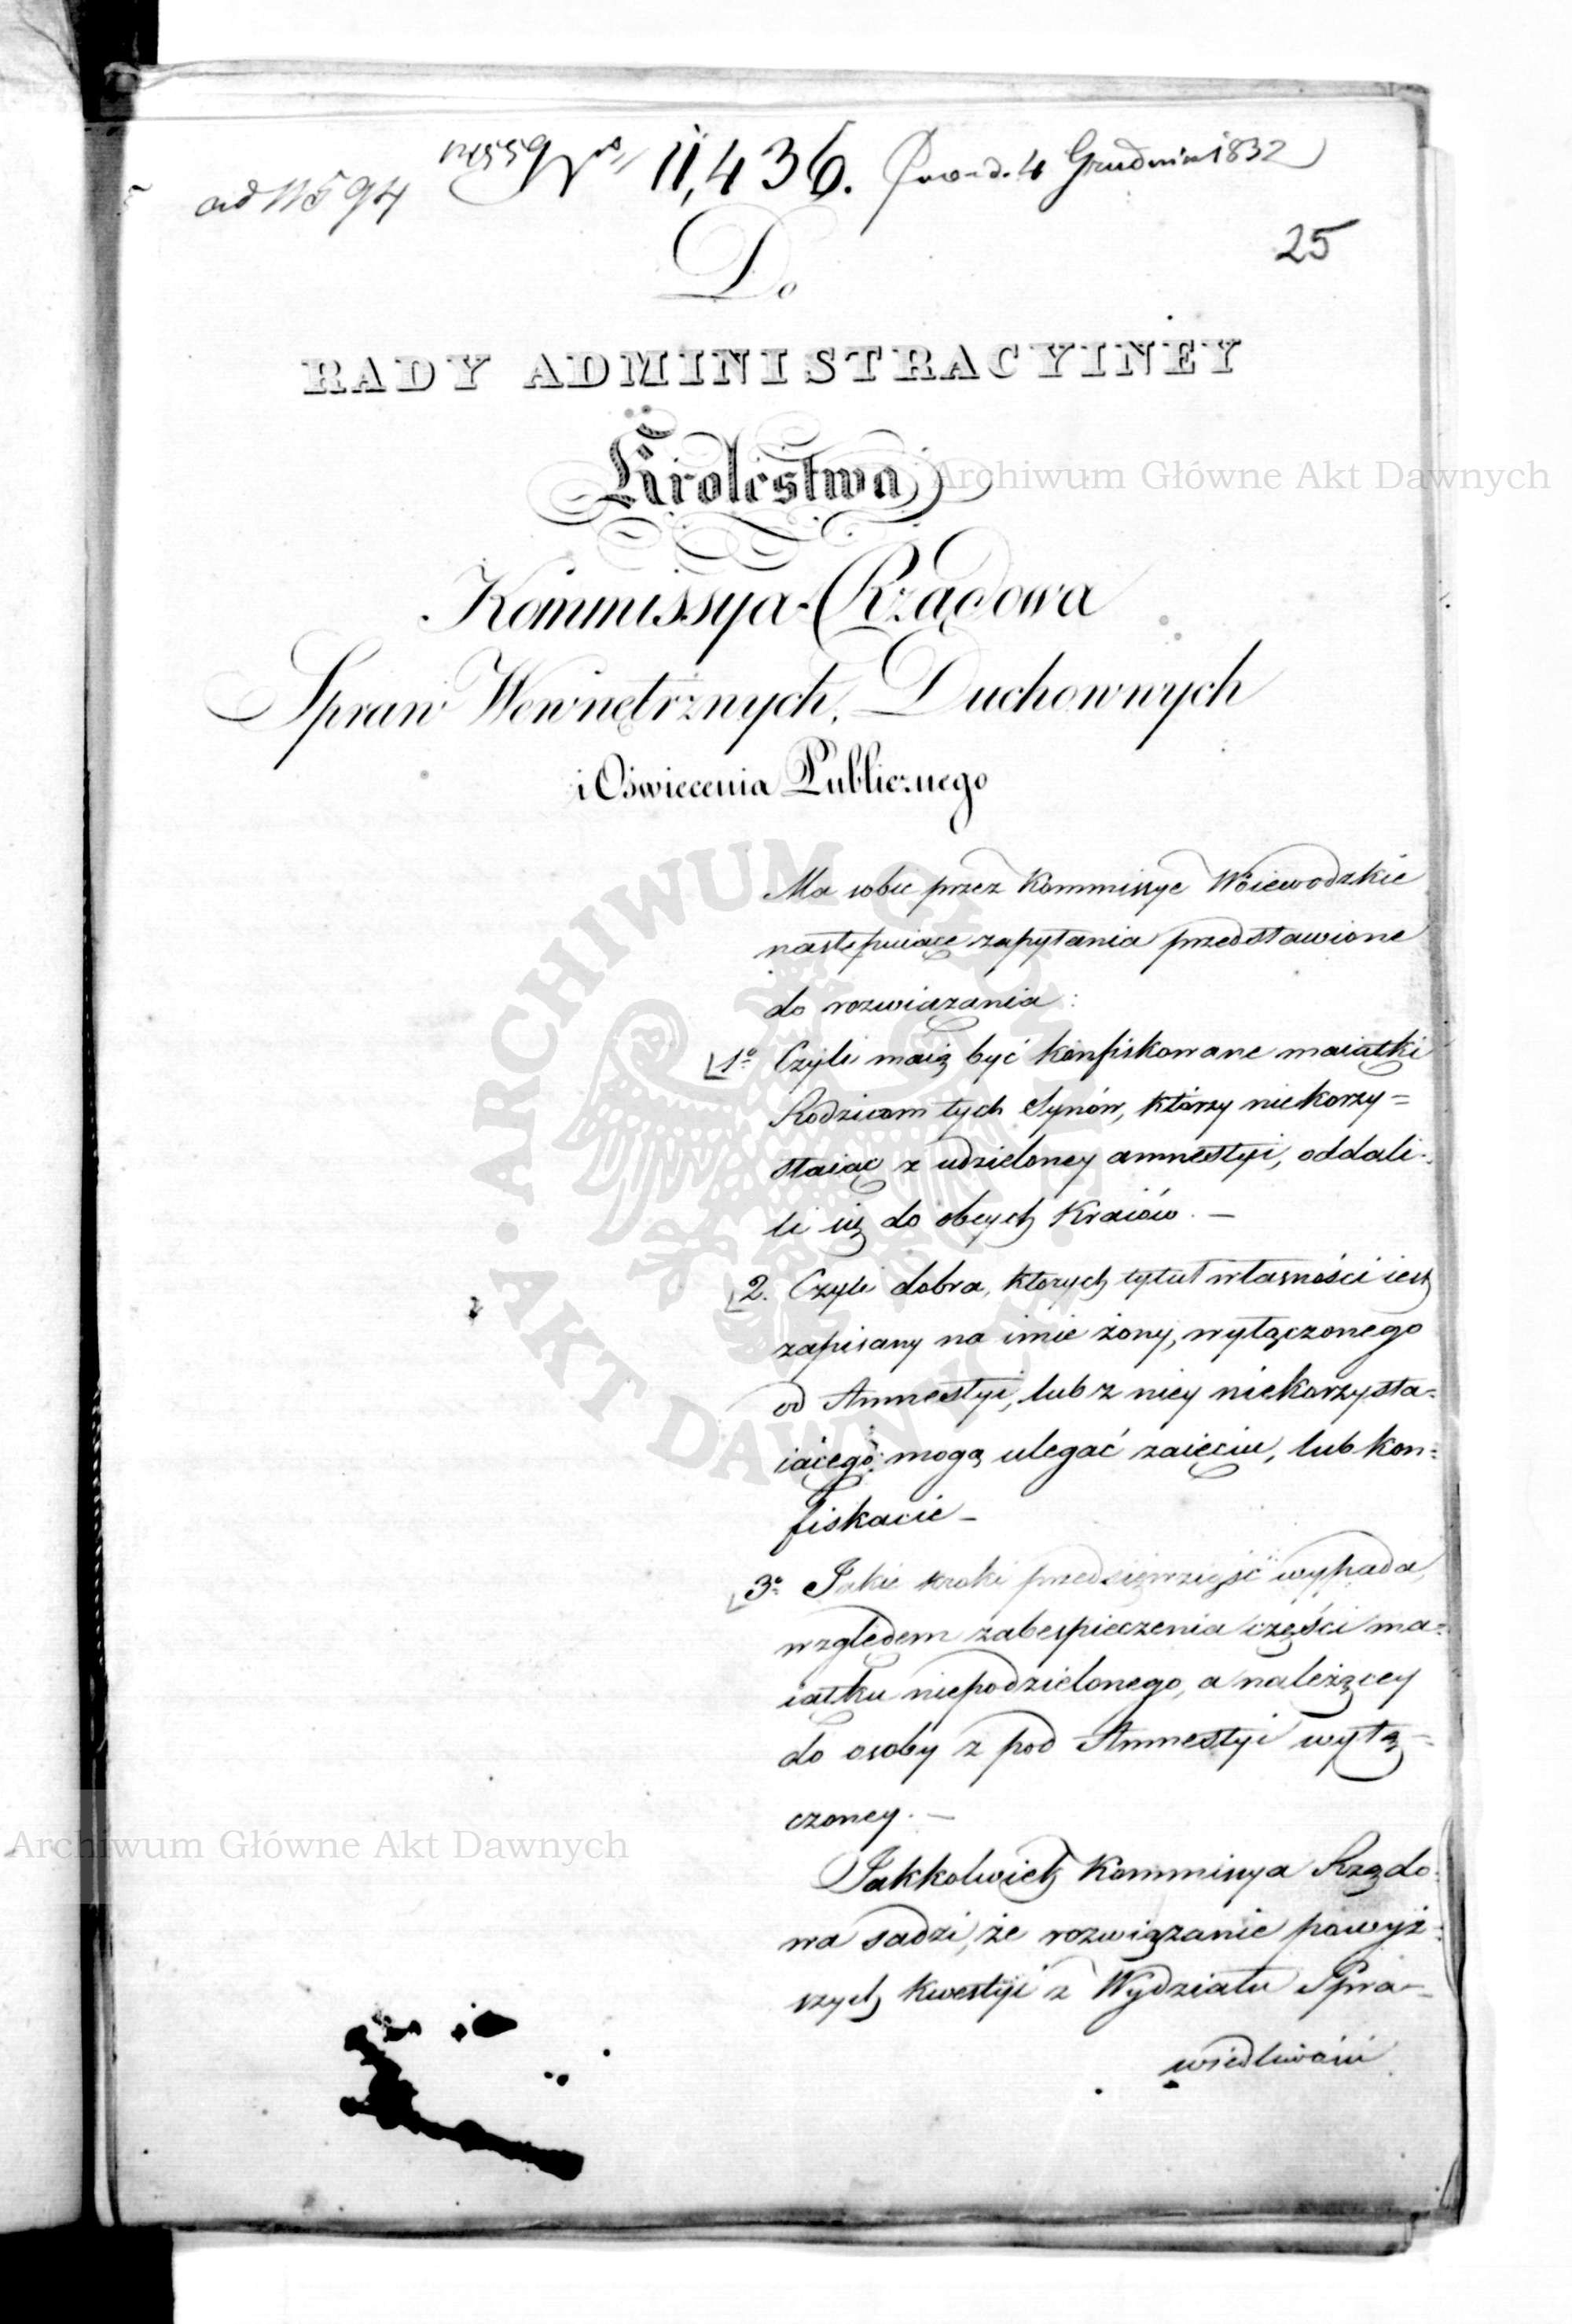 No 11,436. d. 4 Grudnia 1832
ad 11594
25
Do
RADY ADMINISTRACYINEY
Królestwa
Archiwum Główne Akt Dawnych
Kommissya Rządowa
Spraw Wewnętrznych, Duchownych
i Oświecenia Publicznego
Ma sobie przez Kommissye Woiewodzkie
następuiące zapytania przedstawione
do rozwiązania:
1o Czyli maią być konfiskowane maiątki
Rodzicom tych Synów, którzy niekorzy=
staiąc z udzieloney amnestyi, oddali-
li się do obcych Kraiów. —
2. Czyli dobra, ktorych tytuł własności iest
zapisany na imie żony, wyłączonego
od Amnestyi, lub z niey niekorzysta=
iącego, mogą ulegać zaięciu, lub kon=
fiskacie —
3o Jakie kroki przedsięwziąść wypada,
względem zabespieczenia części ma=
iątku niepodzielonego, a należącey
do osoby z pod Amnestyi wyłą=
czoney. —
Archiwum Główne Akt Dawnych
Jakkolwiek Kommissya Rządo=
wa sądzi, że rozwiązanie powyż=
szych kwestyi z Wydziału Spra=
wiedliwości
ARCHIWUM GŁÓWNE • AKT DAWNYCH •